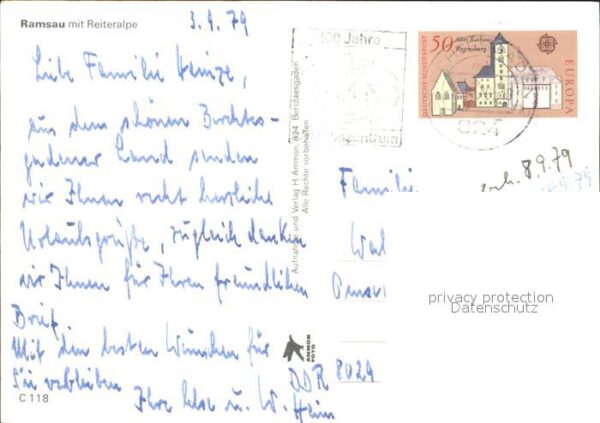 Ramsau mit Reiteralpe
3.9.79
Liebe Familie Heinze,
aus dem schönen Berchtes-
gadener Land senden
wir Ihnen recht herzliche
Urlaubsgrüße, zugleich danken
wir Ihnen für Ihren freundlichen
Brief.
Mit den besten Wünschen für
Sie verbleiben
Ihre u. W. Heim
C 118
Aufnahme und Verlag H. Ammon, 824 Berchtesgaden
Alle Rechte vorbehalten
AMMON
FOTO
100 Jahre
50
Altes Rathaus
Regensburg
DEUTSCHE BUNDESPOST
EUROPA
824
8.9.79
Familie
DDR 8029
privacy protection
Datenschutz